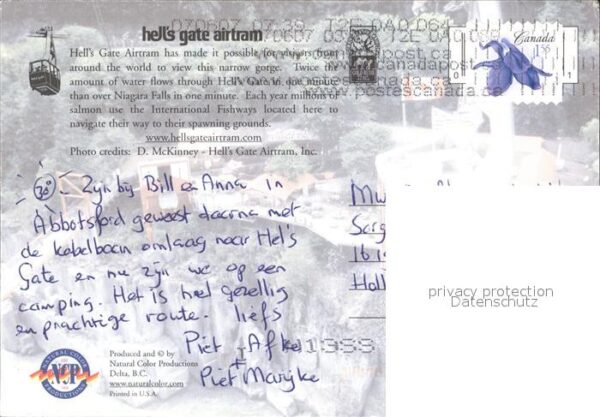 hell's gate airtram
Hell's Gate Airtram has made it possible for visitors from
around the world to view this narrow gorge. Twice the
amount of water flows through Hell's Gate in one minute
than over Niagara Falls in one minute. Each year millions of
salmon use the International Fishways located here to
navigate their way to their spawning grounds.
www.hellsgateairtram.com
Photo credits: D. McKinney - Hell's Gate Airtram, Inc.
070607 07:39 T2E DAO 064
Canada
155
www.postescanada.ca
Zijn bij Bill en Anna in
Abbotsford geweest daarna met
de kabelbaan omlaag naar Hel's
Gate en nu zijn we op een
camping. Het is heel gezellig
en prachtige route. liefs
Piet Afke
+
Piet Marijke
1999
Holl
privacy protection
Datenschutz
NATURAL COLOR
NCP
PRODUCTIONS
Produced and © by
Natural Color Productions
Delta, B.C.
www.naturalcolor.com
Printed in U.S.A.